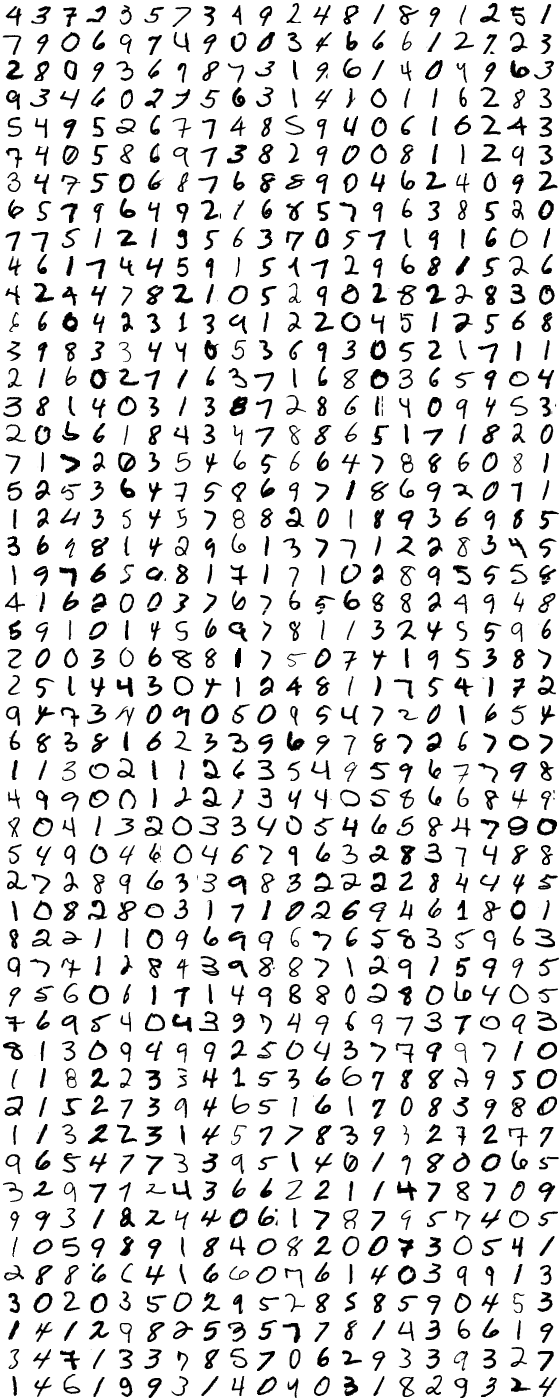 4 3 7 2 3 5 7 3 4 9 2 4 8 1 8 9 1 2 5 1
7 9 0 6 9 7 4 9 0 0 3 4 6 6 6 1 2 7 2 3
2 8 0 9 3 6 9 8 7 3 1 9 6 1 4 0 4 9 6 3
9 3 4 6 0 2 7 5 6 3 1 4 1 0 1 1 6 2 8 3
5 4 9 5 2 6 7 7 4 8 5 9 4 0 6 1 6 2 4 3
7 4 0 5 8 6 9 7 3 8 2 9 0 0 8 1 1 2 9 3
3 4 7 5 0 6 8 7 6 8 8 9 0 4 6 2 4 0 9 2
6 5 7 9 6 4 9 2 1 6 8 5 7 9 6 3 8 5 2 0
7 7 5 1 2 1 9 5 6 3 7 0 5 7 1 9 1 6 0 1
4 6 1 7 4 4 5 9 1 5 1 7 2 9 6 8 1 5 2 6
4 2 4 4 7 8 2 1 0 5 2 9 0 2 8 2 2 8 3 0
6 6 0 4 2 3 1 3 9 1 2 2 0 4 5 1 2 5 6 8
3 9 8 3 3 4 4 4 0 5 3 6 9 3 0 5 2 1 7 1 1
2 1 6 0 2 7 1 6 3 7 1 6 8 0 3 6 5 9 0 4
3 8 1 4 0 3 1 3 8 7 2 8 6 1 4 0 9 4 5 3
2 0 5 6 1 8 4 3 4 7 8 8 6 5 1 7 1 8 2 0
7 1 7 2 0 3 5 4 6 5 6 6 4 7 8 8 6 0 8 1
5 2 5 3 6 4 7 5 8 6 9 7 1 8 6 9 2 0 7 1
1 2 4 3 5 4 5 7 8 8 2 0 1 8 9 3 6 9 8 5
3 6 9 8 1 4 2 9 6 1 3 7 7 1 2 2 8 3 4 5
1 9 7 6 5 0 8 1 7 1 7 1 0 2 8 9 5 5 5 8
4 1 6 2 0 0 3 7 6 7 6 5 6 8 8 2 4 9 4 8
5 9 1 0 1 4 5 6 9 7 8 1 1 3 2 4 5 5 9 6
2 0 0 3 0 6 8 8 1 7 5 0 7 4 1 9 5 3 8 7
2 5 1 4 4 3 0 4 1 2 4 8 1 1 7 5 4 1 7 2
9 4 7 3 4 0 9 0 6 0 9 5 4 7 2 0 1 6 5 4
6 8 3 8 1 6 2 3 3 9 6 9 7 8 7 2 6 7 0 7
1 1 3 0 2 1 1 2 6 3 5 4 9 5 9 6 7 7 9 8
4 9 9 0 0 1 2 2 1 3 4 4 0 5 8 6 6 8 4 9
8 0 4 1 3 2 0 3 3 4 0 5 4 6 5 8 4 7 9 0
5 4 9 0 4 6 0 4 6 7 9 6 3 2 8 3 7 4 8 8
2 7 2 8 9 6 3 3 9 8 3 2 2 2 2 8 4 4 4 5
1 0 8 2 8 0 3 1 7 1 0 2 6 9 4 6 1 8 0 1
8 2 2 1 1 0 9 6 9 9 6 7 6 5 8 3 5 9 6 3
9 7 7 1 2 8 4 3 9 8 8 7 1 2 9 1 5 9 9 5
9 5 6 0 6 1 7 1 4 9 8 8 0 2 8 0 6 4 0 5
7 6 9 5 4 0 4 3 9 7 4 9 6 9 7 3 7 0 9 3
8 1 3 0 9 4 9 9 2 5 0 4 3 7 7 9 9 7 1 0
1 1 8 2 2 3 3 4 1 5 3 6 6 7 8 8 2 9 5 0
2 1 5 2 7 3 9 4 6 5 1 6 1 7 0 8 3 9 8 0
1 1 3 2 2 3 1 4 5 7 7 8 3 9 3 2 7 2 7 7
9 6 5 4 7 7 3 3 9 5 1 4 0 1 9 8 0 0 6 5
3 2 9 7 1 2 4 3 6 6 2 2 1 1 4 7 8 7 0 9
9 9 3 1 8 2 4 4 0 6 1 7 8 7 9 5 7 4 0 5
1 0 5 9 8 9 1 8 4 0 8 2 0 0 7 3 0 5 4 1
2 8 8 6 6 4 1 6 6 0 7 6 1 4 0 3 9 9 1 3
3 0 2 0 3 5 0 2 9 5 2 8 5 8 5 9 0 4 5 3
1 4 1 2 9 8 2 5 3 5 7 7 8 1 4 3 6 6 1 9
3 4 7 1 3 3 7 8 5 7 0 6 2 9 3 3 9 3 2 7
1 4 6 1 9 9 3 1 4 0 4 0 3 1 8 2 9 3 2 4